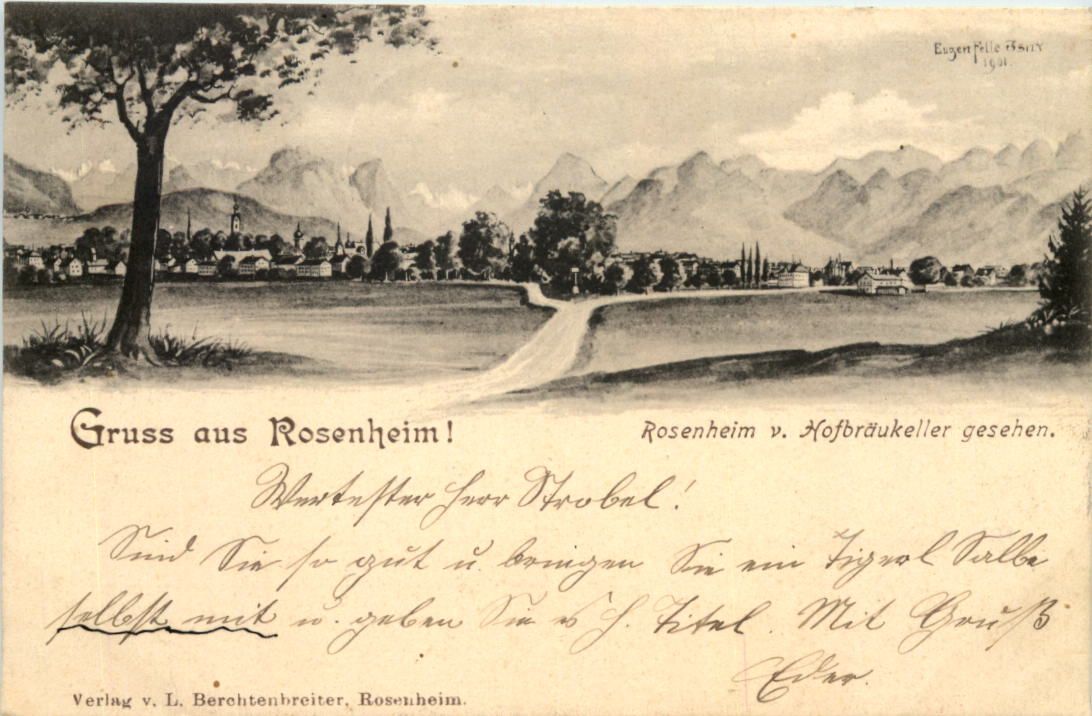 Eugen Felle Isny
1901.
Gruss aus Rosenheim!
Rosenheim v. Hofbräukeller gesehen.
Wertester Herr Strobel!
Sind Sie so gut u. bringen Sie ein Tigerl Salbe
selbst mit u. geben Sie es H. Titel. Mit Gruß
Eder.
Verlag v. L. Berchtenbreiter, Rosenheim.